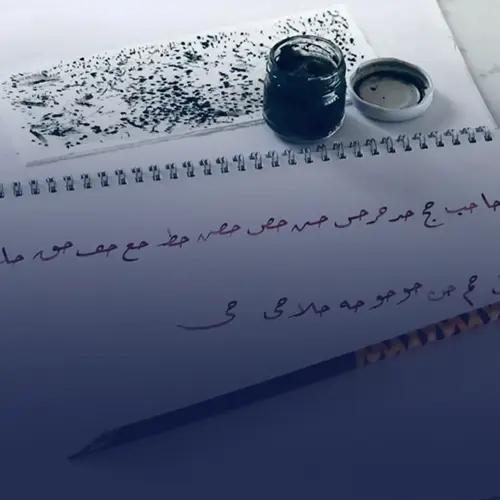 حا حب حج حد حر حس حس حص حص حط حع حف حق
حم حن حو حو حه حلا حى حى